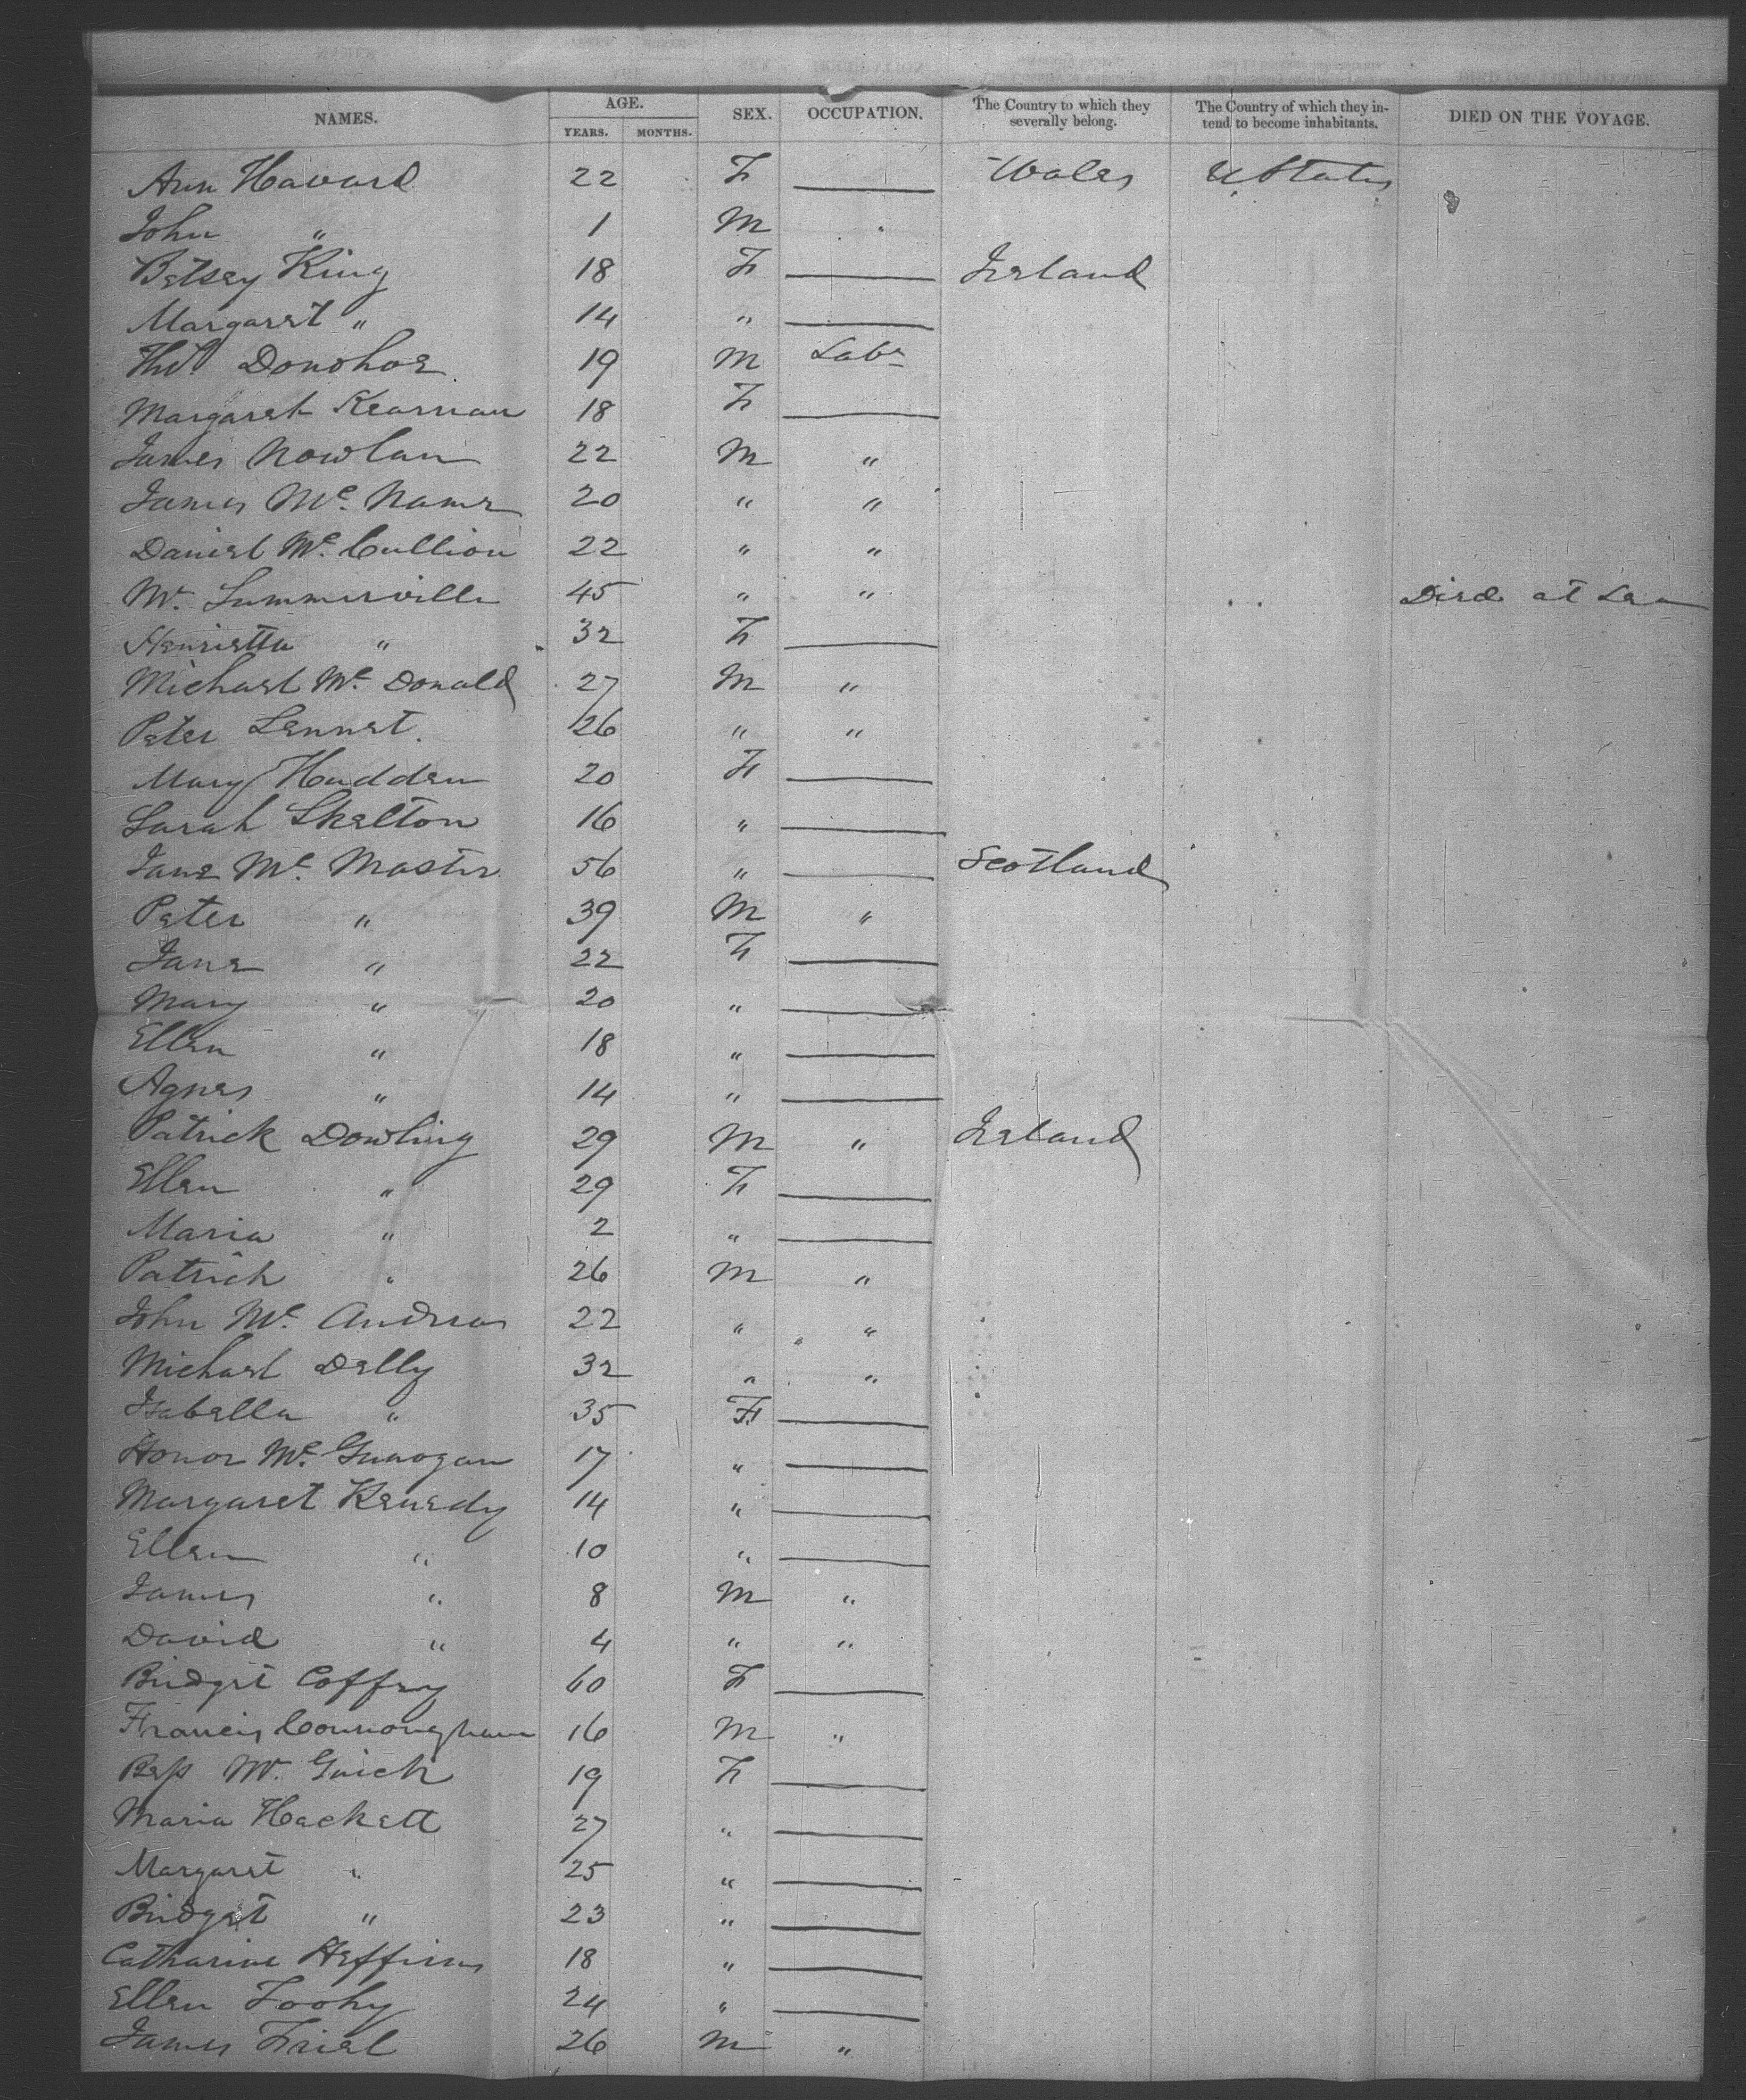 NAMES. AGE. SEX. OCCUPATION. The Country to which they severally belong. The Country of which they intend to become inhabitants. DIED ON THE VOYAGE.
YEARS. MONTHS.
Ann Havard 22 F —— Wales U States
John " 1 M "
Betsey King 18 F —— Ireland
Margaret " 14 " ——
Donohoe 19 M Labr
Margaret Kearnan 18 F ——
James Nowlan 22 M "
James Mc. Name 20 " "
Daniel Mc. Cullion 22 " "
Wm. Summerville 45 " " Died at Sea
Henrietta " 32 F ——
Michael Mc. Donald 27 M "
Peter Sennet. 26 " "
Mary Hadden 20 F ——
Sarah Skelton 16 " ——
Jane Mc. Master 56 " —— Scotland
Peter " 39 M "
Jane " 22 F ——
Mary " 20 " ——
Ellen " 18 " ——
Agnes " 14 " ——
Patrick Dowling 29 M " Ireland
Ellen " 29 F ——
Maria " 2 " ——
Patrick " 26 M "
John Mc. Andrew 22 " "
Michael Delly 32 " "
Isabella " 35 F ——
Honor Mc. 17 " ——
Margaret Kenedy 14 " ——
Ellen " 10 " ——
James " 8 M "
David " 4 " "
Bridget Coffey 60 F ——
Francis Connongham 16 M "
Bess 19 F ——
Maria Hackett 27 " ——
Margaret " 25 " ——
Bridget " 23 " ——
Catharine Heffins 18 " ——
Ellen Toohy 24 " ——
James Friel 26 M "